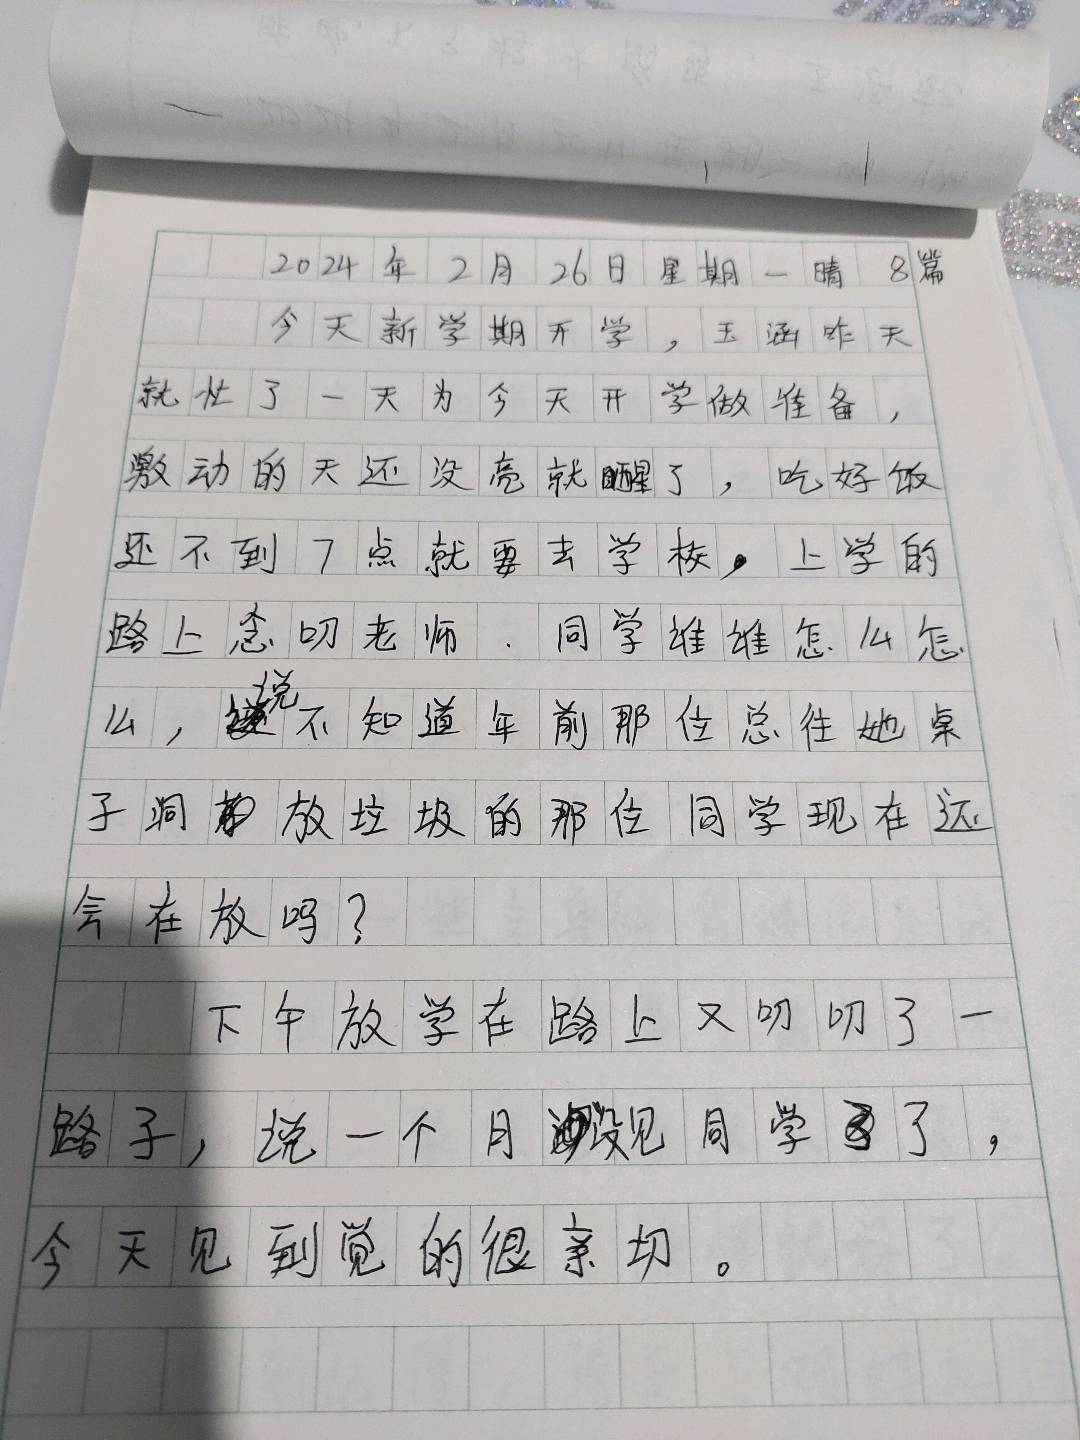 2024年2月26日星期一晴 8篇
今天新学期开学，玉涵昨天
就忙了一天为今天开学做准备，
激动的天还没亮就醒了，吃好饭
还不到7点就要去学校，上学的
路上念叨老师．同学谁谁怎么怎
么，说不知道年前那位总往她桌
子洞放垃圾的那位同学现在还
会在放吗？
下午放学在路上又叨叨了一
路子，说一个月没见同学了，
今天见到觉的很亲切。